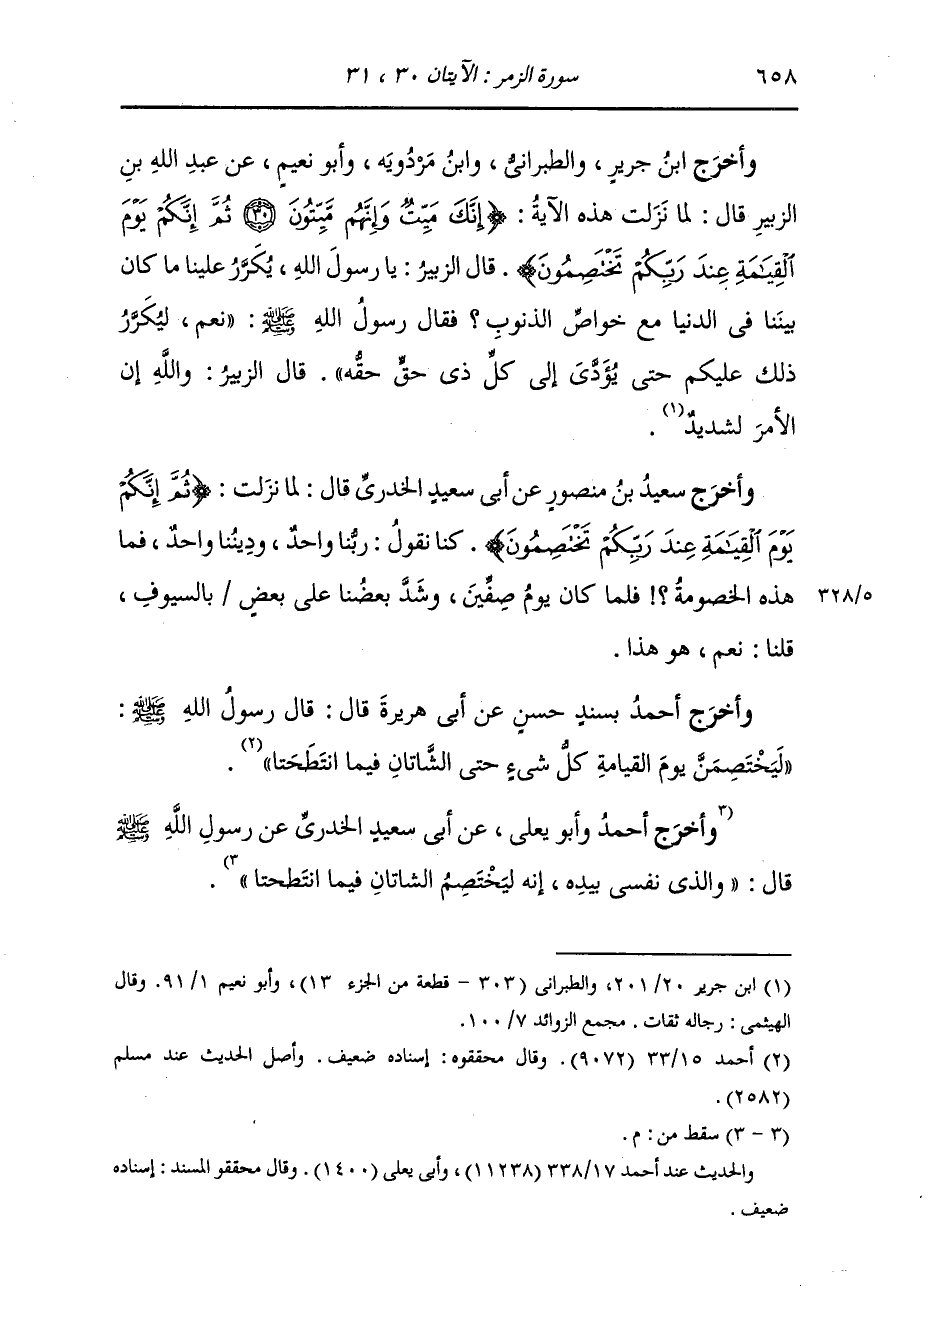 ٦٥٨ سورة الزمر : الآيتان ٣٠ ، ٣١
وأخرَج ابنُ جريرٍ ، والطبرانىُّ ، وابنُ مَرْدُويَه ، وأبو نعيمٍ ، عن عبدِ اللهِ بنِ
الزبيرِ قال : لما نَزَلت هذه الآيةُ : ﴿إِنَّكَ مَيِّتٌ وَإِنَّهُم مَّيِّتُونَ ﴿٣٠﴾ ثُمَّ إِنَّكُمْ يَوْمَ
ٱلْقِيَـٰمَةِ عِندَ رَبِّكُمْ تَخْتَصِمُونَ﴾ . قال الزبيرُ : يا رسولَ اللهِ ، يُكَرَّرُ علينا ما كان
بينَنا فى الدنيا مع خواصِّ الذنوبِ ؟ فقال رسولُ اللهِ ﷺ : «نعم ، ليُكَرَّرُ
ذلك عليكم حتى يُؤَدَّىَ إلى كلِّ ذى حقٍّ حقُّه» . قال الزبيرُ : واللَّهِ إن
الأمرَ لشديدٌ(١) .
وأخرَج سعيدُ بنُ منصورٍ عن أبى سعيدٍ الخدرىِّ قال : لما نزَلت : ﴿ثُمَّ إِنَّكُمْ
يَوْمَ ٱلْقِيَـٰمَةِ عِندَ رَبِّكُمْ تَخْتَصِمُونَ﴾ . كنا نقولُ : ربُّنا واحدٌ ، ودِينُنا واحدٌ ، فما
هذه الخصومةُ ؟! فلما كان يومُ صِفِّينَ ، وشَدَّ بعضُنا على بعضٍ / بالسيوفِ ، ٣٢٨/٥
قلنا : نعم ، هو هذا .
وأخرَج أحمدُ بسندٍ حسنٍ عن أبى هريرةَ قال : قال رسولُ اللهِ ﷺ :
«لَيَخْتَصِمَنَّ يومَ القيامةِ كلُّ شىءٍ حتى الشَّاتانِ فيما انتَطَحَتا»(٢) .
(٣وأخرَج أحمدُ وأبو يعلى ، عن أبى سعيدٍ الخدرىِّ عن رسولِ اللَّهِ ﷺ
قال : « والذى نفسى بيدِه ، إنه ليَخْتَصِمُ الشاتانِ فيما انتَطحتا »٣) .
(١) ابن جرير ٢٠/ ٢٠١، والطبرانى (٣٠٣ - قطعة من الجزء ١٣)، وأبو نعيم ١/ ٩١. وقال
الهيثمى : رجاله ثقات . مجمع الزوائد ٧/ ١٠٠.
(٢) أحمد ٣٣/١٥ (٩٠٧٢). وقال محققوه: إسناده ضعيف. وأصل الحديث عند مسلم
(٢٥٨٢) .
(٣ - ٣) سقط من : م .
والحديث عند أحمد ٣٣٨/١٧ (١١٢٣٨) ، وأبى يعلى (١٤٠٠) . وقال محققو المسند : إسناده
ضعيف .